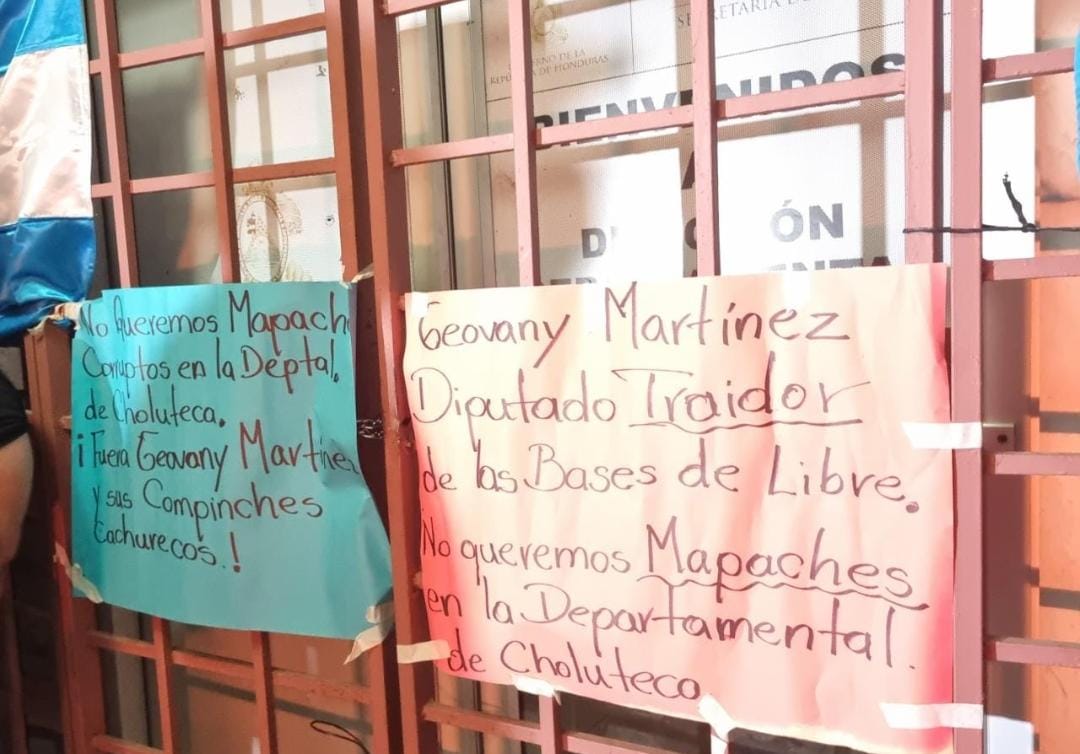 SECRETARÍA
GOBIERNO DE LA
REPÚBLICA DE HONDURAS
BIENVENIDOS
A
No Queremos Mapach
Corruptos en la Deptal.
de Choluteca.
¡Fuera Geovany Martínez
y sus Compinches
Cachurecos.!
Geovany Martínez
Diputado Traidor
de las Bases de Libre.
No queremos Mapaches
en la Departamental.
de Choluteca